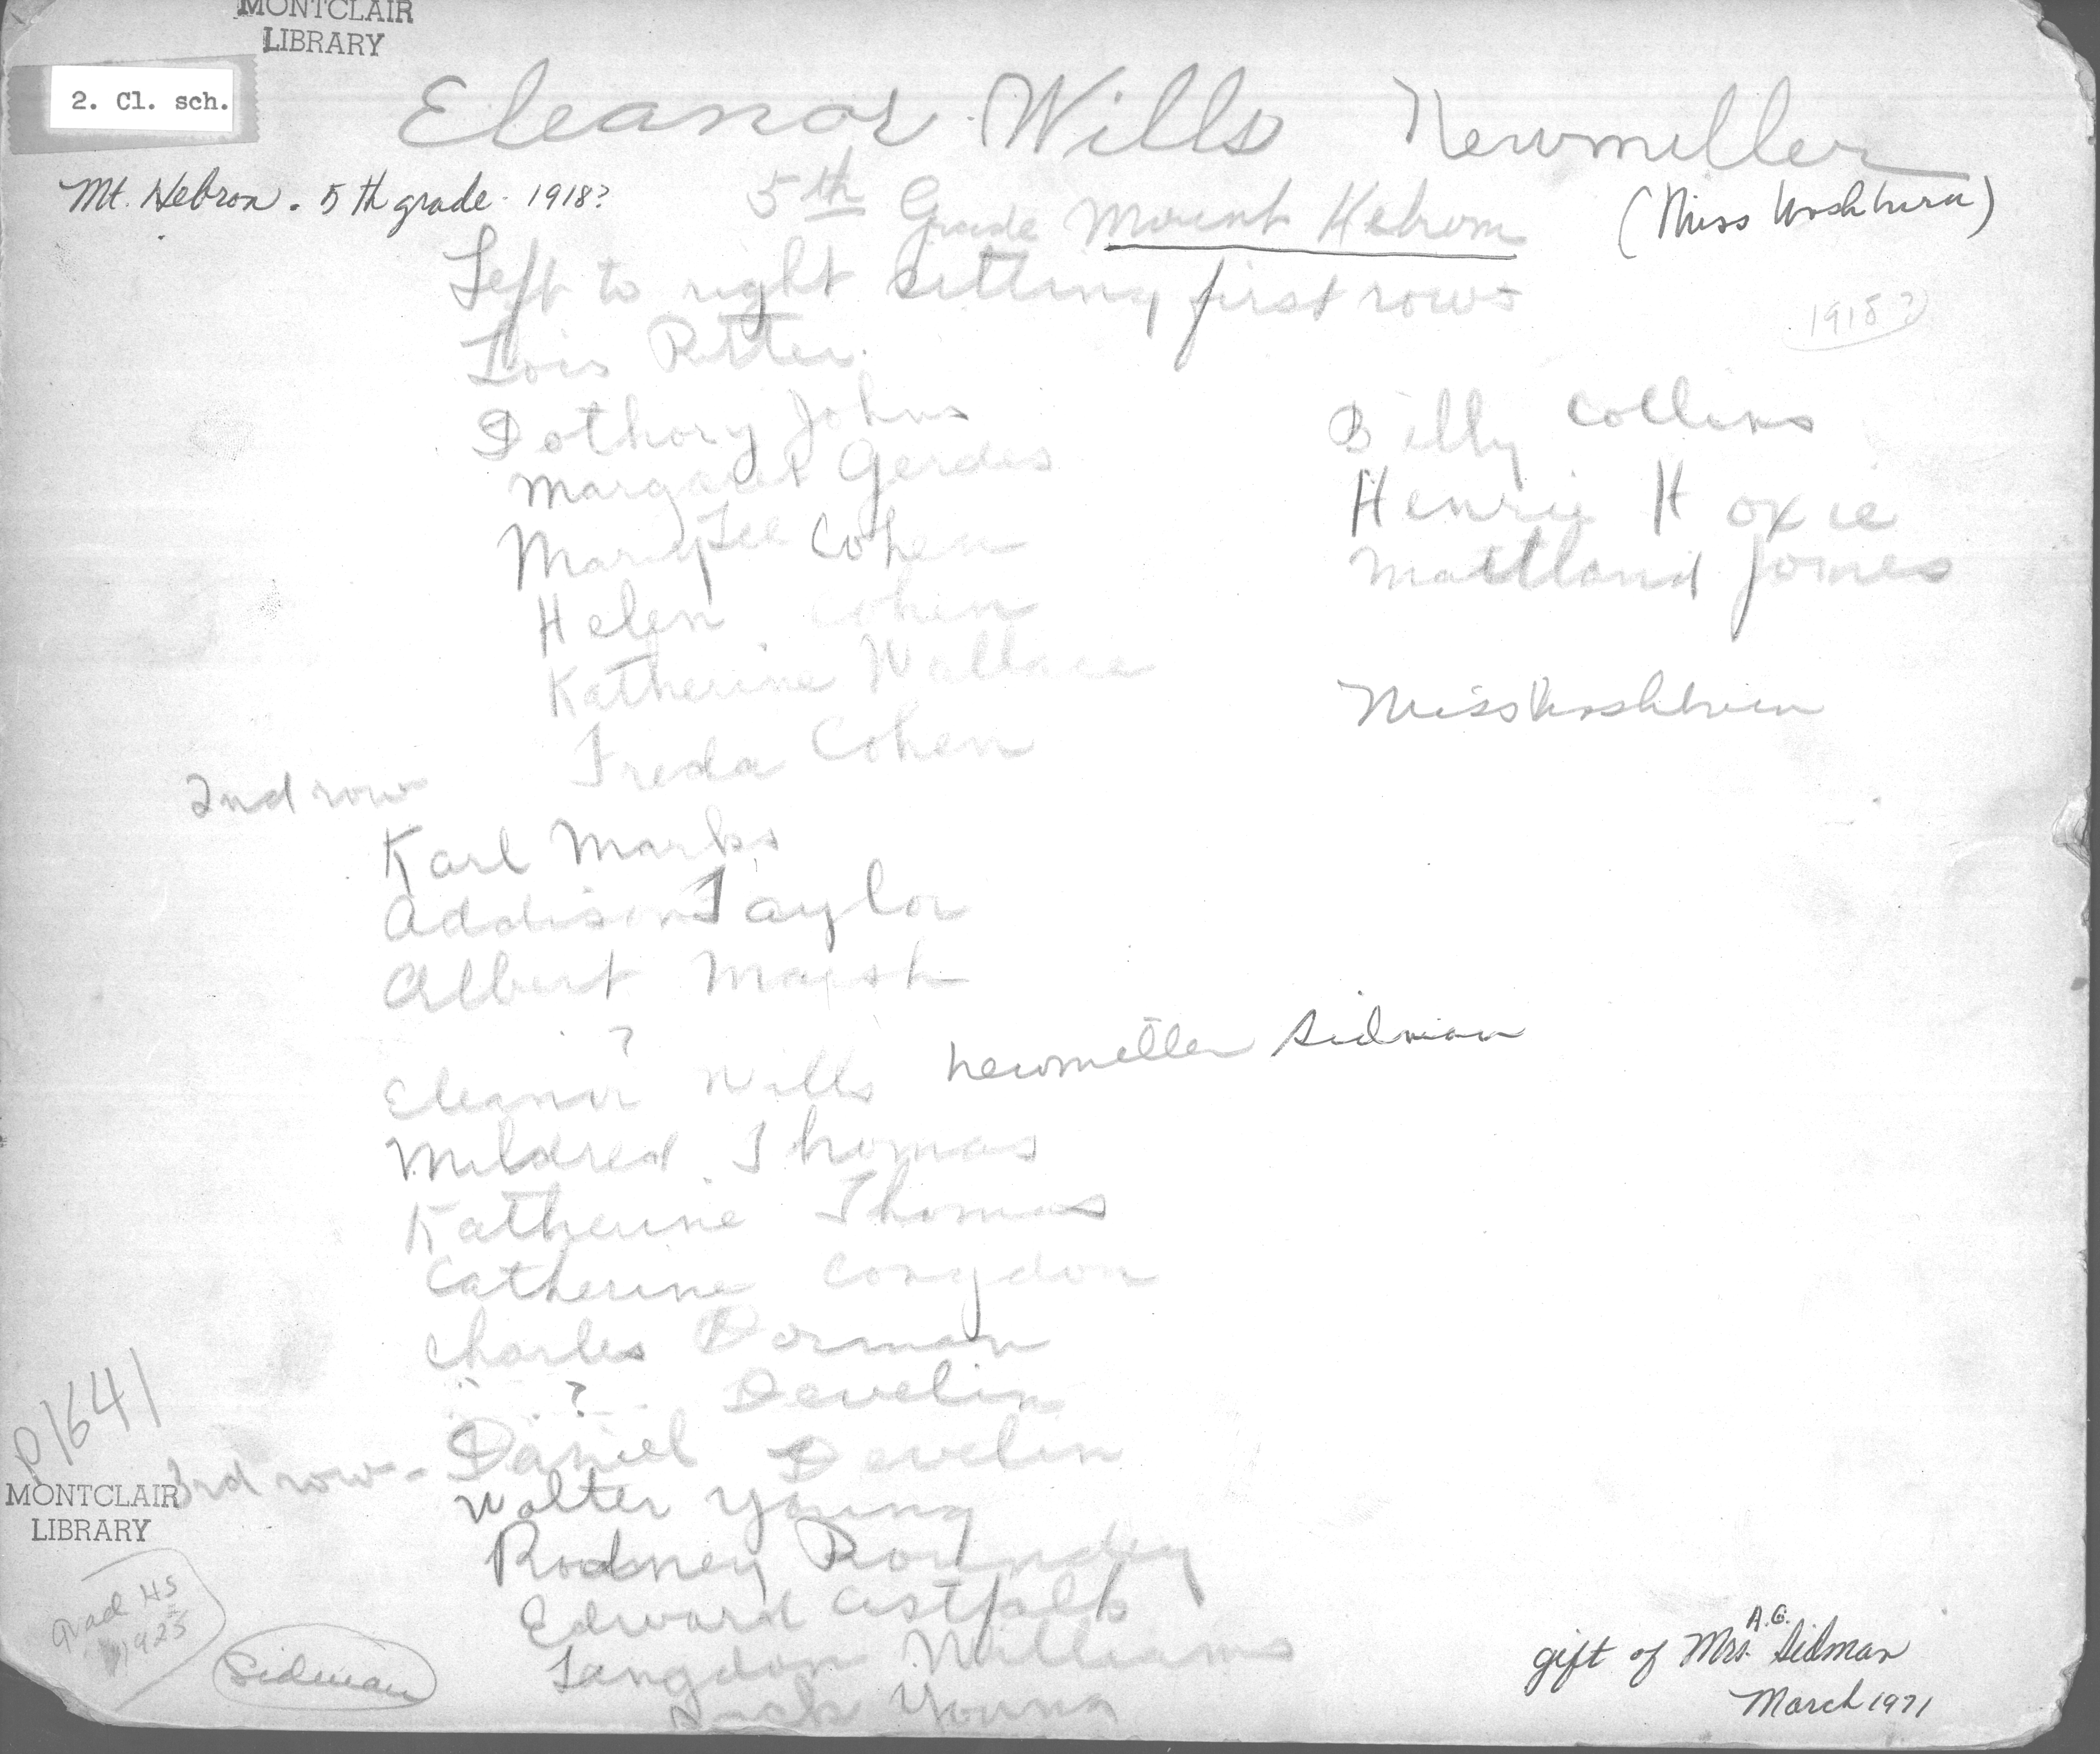 MONTCLAIR
LIBRARY
2. Cl. sch.
Eleanor Wills Newmiller
Mt. Hebron. 5th grade. 1918?
5th Grade Mount Hebron
(Miss Washburn)
Left to right sitting first row
1918?
Lois Ritter.
Dothory Johns
Margaret Gerdes
Mary Lee Cohen
Helen Cohen
Katherine Wallace
Freda Cohen
Billy Collins
Henrie Hoxie
Maitland Jones
Miss Washburn
2nd row
Karl Marks
Addison Taylor
Albert Marsh
?
Eleanor Wills Newmiller Sidman
Mildred Thomas
Katherine Thomas
Catherine Congdon
Charles Dorman
? Develin
3rd row - Daniel Develin
Walter Young
Rodney Roundey
Edward
Langdon Williams
Jack Young
P1641
MONTCLAIR
LIBRARY
Grad HS
1925
Sidman
gift of Mrs. A.G. Sidman
March 1971